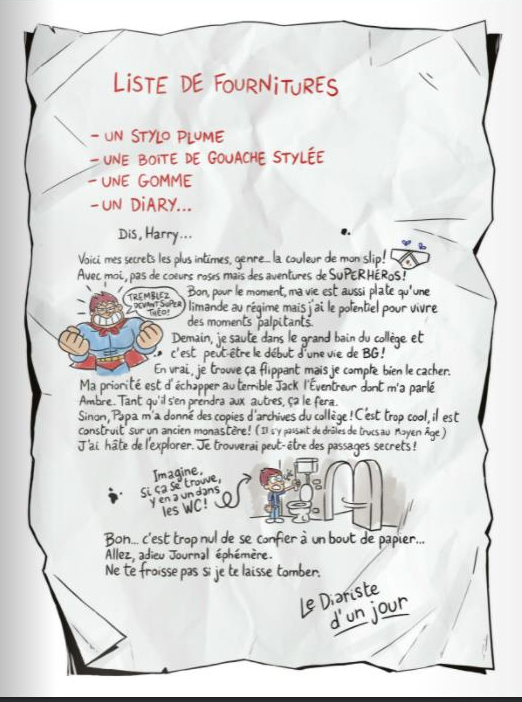 LISTE DE FOURNITURES
- UN STYLO PLUME
- UNE BOITE DE GOUACHE STYLÉE
- UNE GOMME
- UN DIARY...
Dis, Harry...
Voici mes secrets les plus intimes, genre... la couleur de mon slip!
Avec moi, pas de coeurs roses mais des aventures de SUPERHÉROS!
TREMBLEZ
DEVANT SUPER
THÉO!
Bon, pour le moment, ma vie est aussi plate qu'une
limande au régime mais j'ai le potentiel pour vivre
des moments palpitants.
Demain, je saute dans le grand bain du collège et
c'est peut-être le début d'une vie de BG!
En vrai, je trouve ça flippant mais je compte bien le cacher.
Ma priorité est d'échapper au terrible Jack l'Éventreur dont m'a parlé
Ambre. Tant qu'il s'en prendra aux autres, ça le fera.
Sinon, Papa m'a donné des copies d'archives du collège! C'est trop cool, il est
construit sur un ancien monastère! (Il s'y passait de drôles de trucs au Moyen Âge)
J'ai hâte de l'explorer. Je trouverai peut-être des passages secrets!
Imagine,
si ça se trouve,
y en a un dans
les WC!
Bon... c'est trop nul de se confier à un bout de papier...
Allez, adieu Journal éphémère.
Ne te froisse pas si je te laisse tomber.
Le Diariste
d'un jour